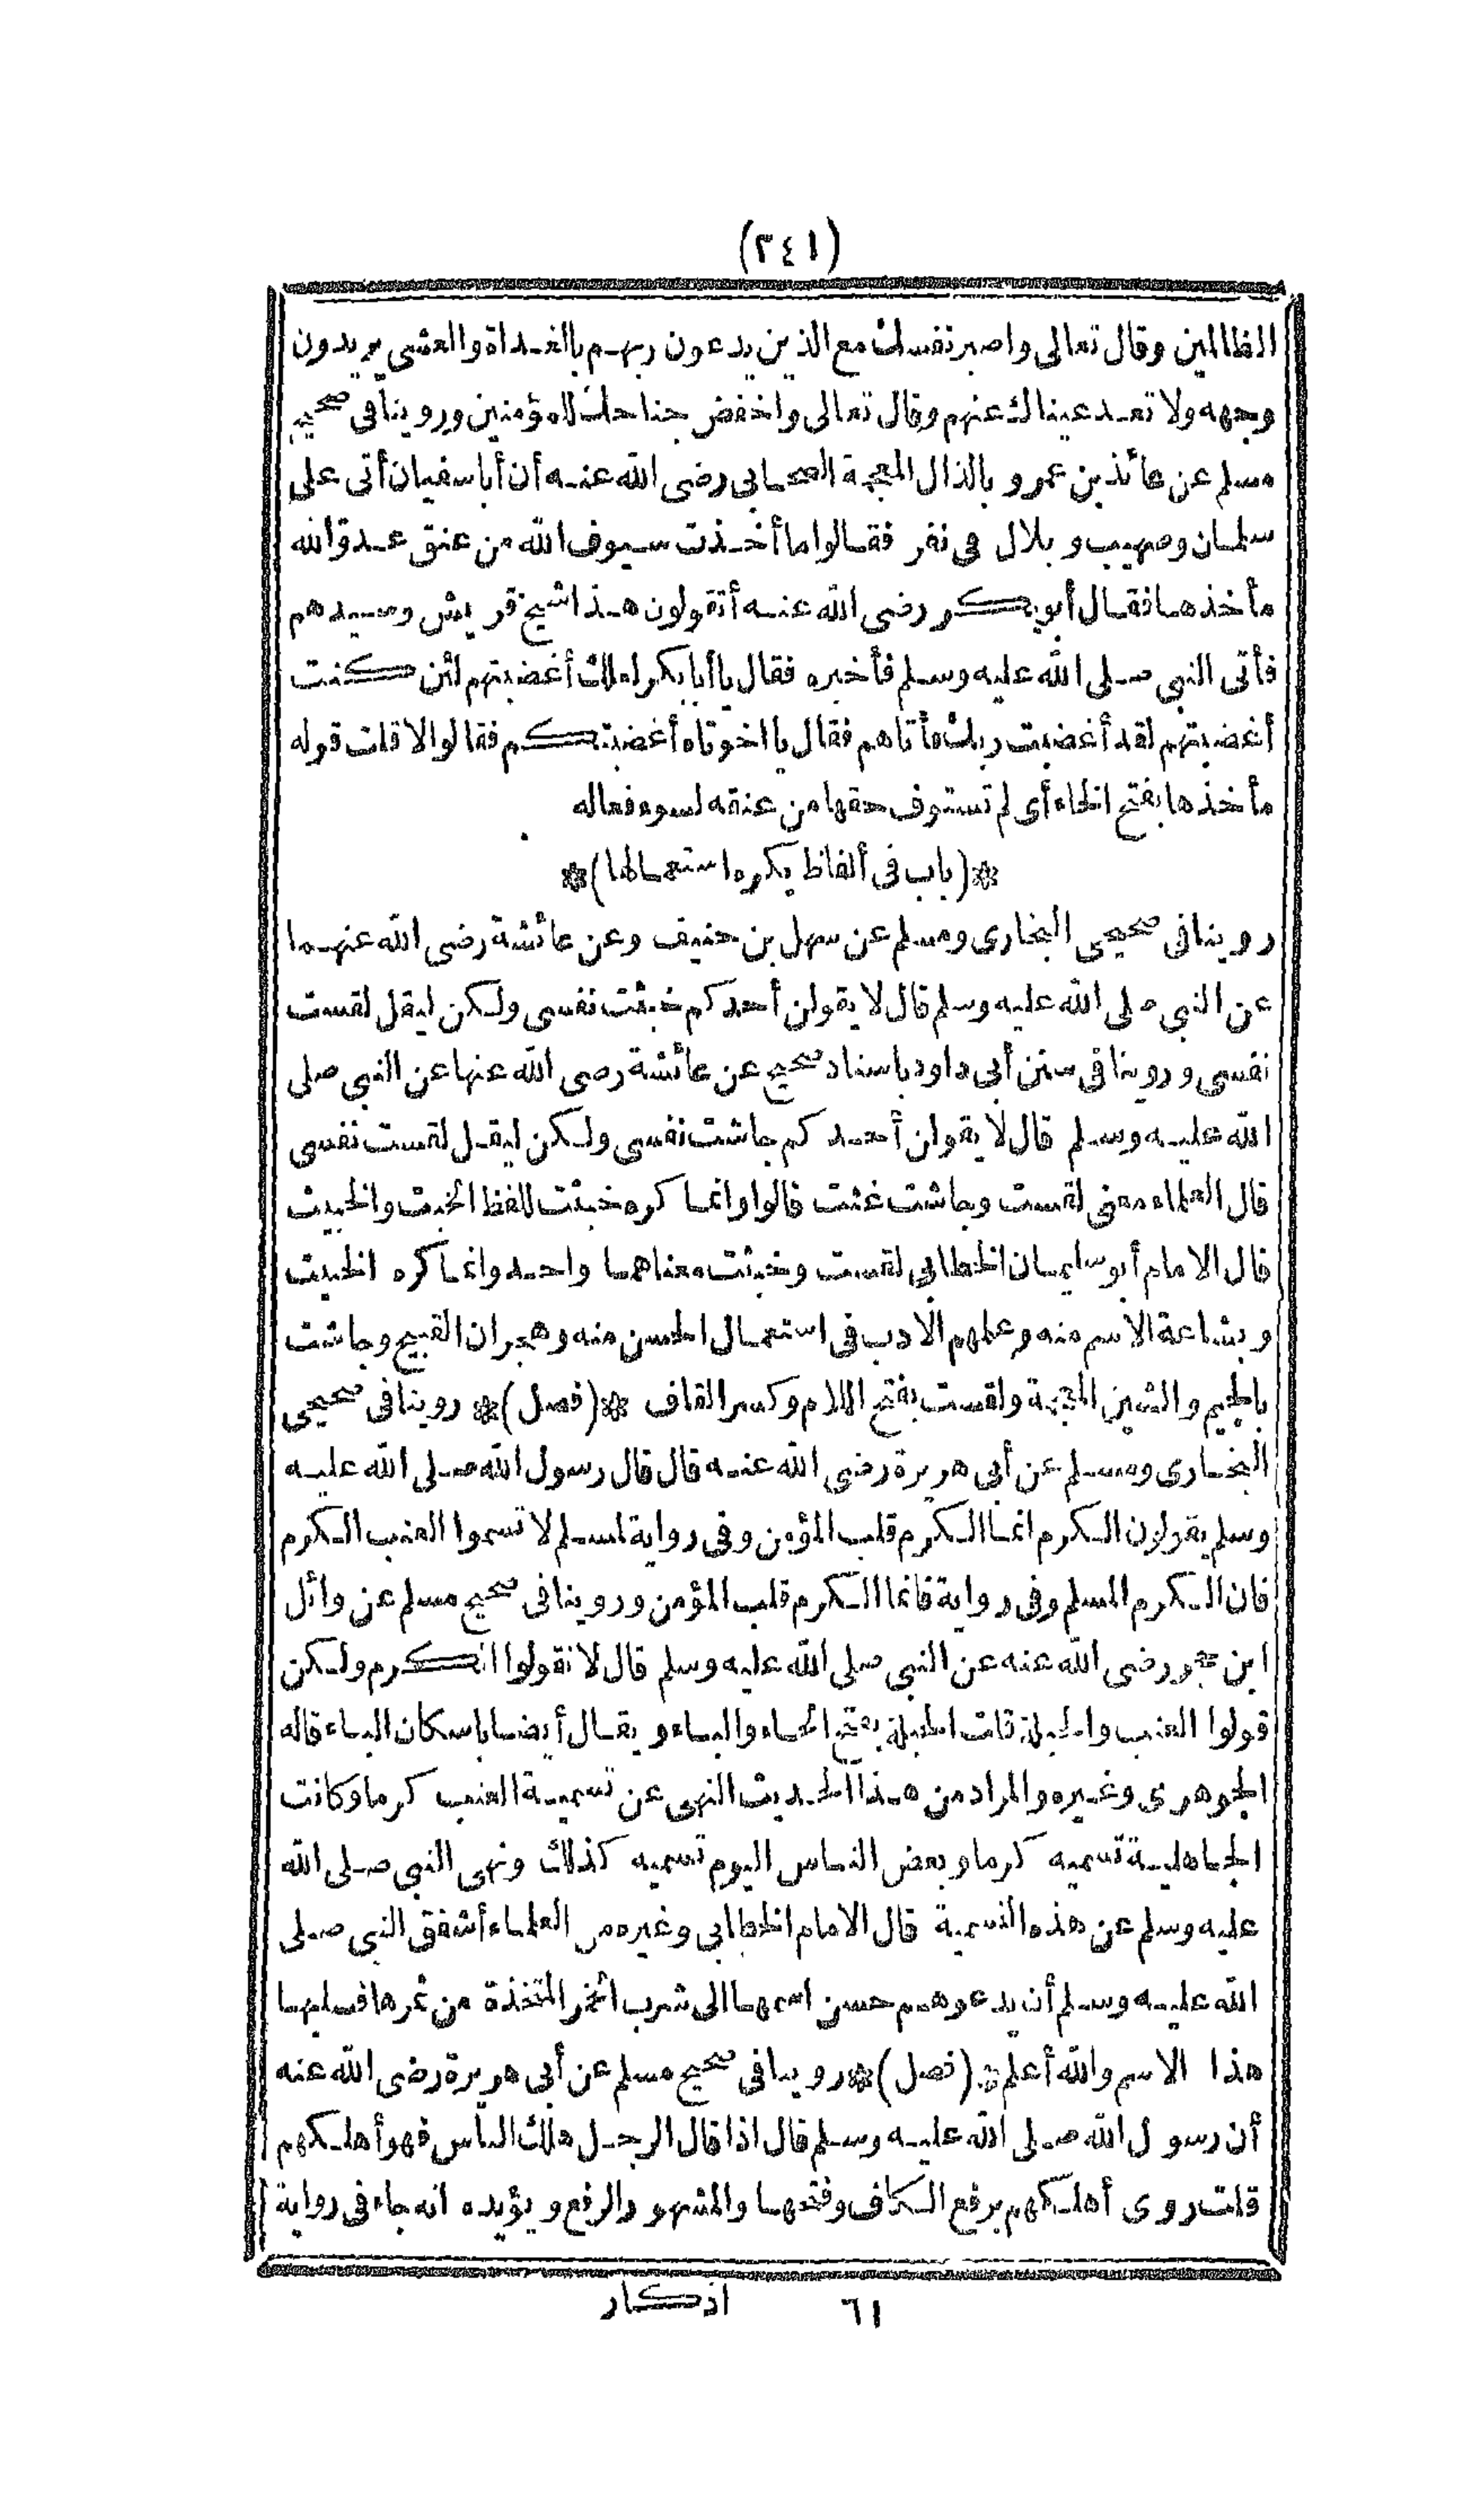 (٢٤١)
الظالمين وقال تعالى واصبر نفسك مع الذين يدعون ربهم بالغداة والعشي يريدون
وجهه ولا تعد عيناك عنهم وقال تعالى واخفض جناحك للمؤمنين وروينا في صحيح
مسلم عن عائذ بن عمرو بالذال المعجمة الصحابي رضي الله عنه أن أبا سفيان أتى على
سلمان وصهيب وبلال في نفر فقالوا ما أخذت سيوف الله من عنق عدوّ الله
مأخذها فقال أبو بكر رضي الله عنه أتقولون هذا لشيخ قريش وسيدهم
فأتى النبي صلى الله عليه وسلم فأخبره فقال يا أبا بكر لعلك أغضبتهم لئن كنت
أغضبتهم لقد أغضبت ربك فأتاهم فقال يا اخوتاه أغضبتكم فقالوا لا قلت قوله
مأخذها بفتح الخاء أى لم تستوف حقها من عنقه لسوء فعاله
*(باب في ألفاظ يكره استعمالها)*
روينا في صحيحي البخارى ومسلم عن سهل بن حنيف وعن عائشة رضي الله عنهما
عن النبي صلى الله عليه وسلم قال لا يقولن أحدكم خبثت نفسى ولكن ليقل لقست
نفسى وروينا في سنن أبى داود باسناد صحيح عن عائشة رضى الله عنها عن النبي صلى
الله عليه وسلم قال لا يقولن أحدكم جاشت نفسى ولكن ليقل لقست نفسى
قال العلماء معنى لقست وجاشت غثت قالوا وانما كره خبثت للفظ الخبث والخبيث
قال الامام أبو سليمان الخطابى لقست وخبثت معناهما واحد وانما كره الخبيث
وبشاعة الاسم منه وعلمهم الادب في استعمال الحسن منه وهجران القبيح وجاشت
بالجيم والشين المعجمة ولقست بفتح اللام وكسر القاف *(فصل)* روينا في صحيحي
البخارى ومسلم عن أبى هريرة رضى الله عنه قال قال رسول الله صلى الله عليه
وسلم يقولون الكرم انما الكرم قلب المؤمن وفى رواية لمسلم لا تسموا العنب الكرم
فان الكرم المسلم وفى رواية فانما الكرم قلب المؤمن وروينا في صحيح مسلم عن وائل
ابن حجر رضى الله عنه عن النبى صلى الله عليه وسلم قال لا تقولوا الكرم ولكن
قولوا العنب والحبلة قلت الحبلة بفتح الحاء والباء ويقال أيضا باسكان الباء قاله
الجوهرى وغيره والمراد من هذا الحديث النهى عن تسمية العنب كرما وكانت
الجاهلية تسميه كرما وبعض الناس اليوم تسميه كذلك ونهى النبى صلى الله
عليه وسلم عن هذه التسمية قال الامام الخطابى وغيره من العلماء أشفق النبى صلى
الله عليه وسلم أن يدعوهم حسن اسمها الى شرب الخمر المتخذة من ثمرها فسلبها
هذا الاسم والله أعلم *(فصل)* روينا في صحيح مسلم عن أبى هريرة رضى الله عنه
أن رسول الله صلى الله عليه وسلم قال اذا قال الرجل هلك الناس فهو أهلكهم
قلت روى أهلكهم برفع الكاف وفتحها والمشهور الرفع ويؤيده انه جاء في رواية
٦١ اذكار